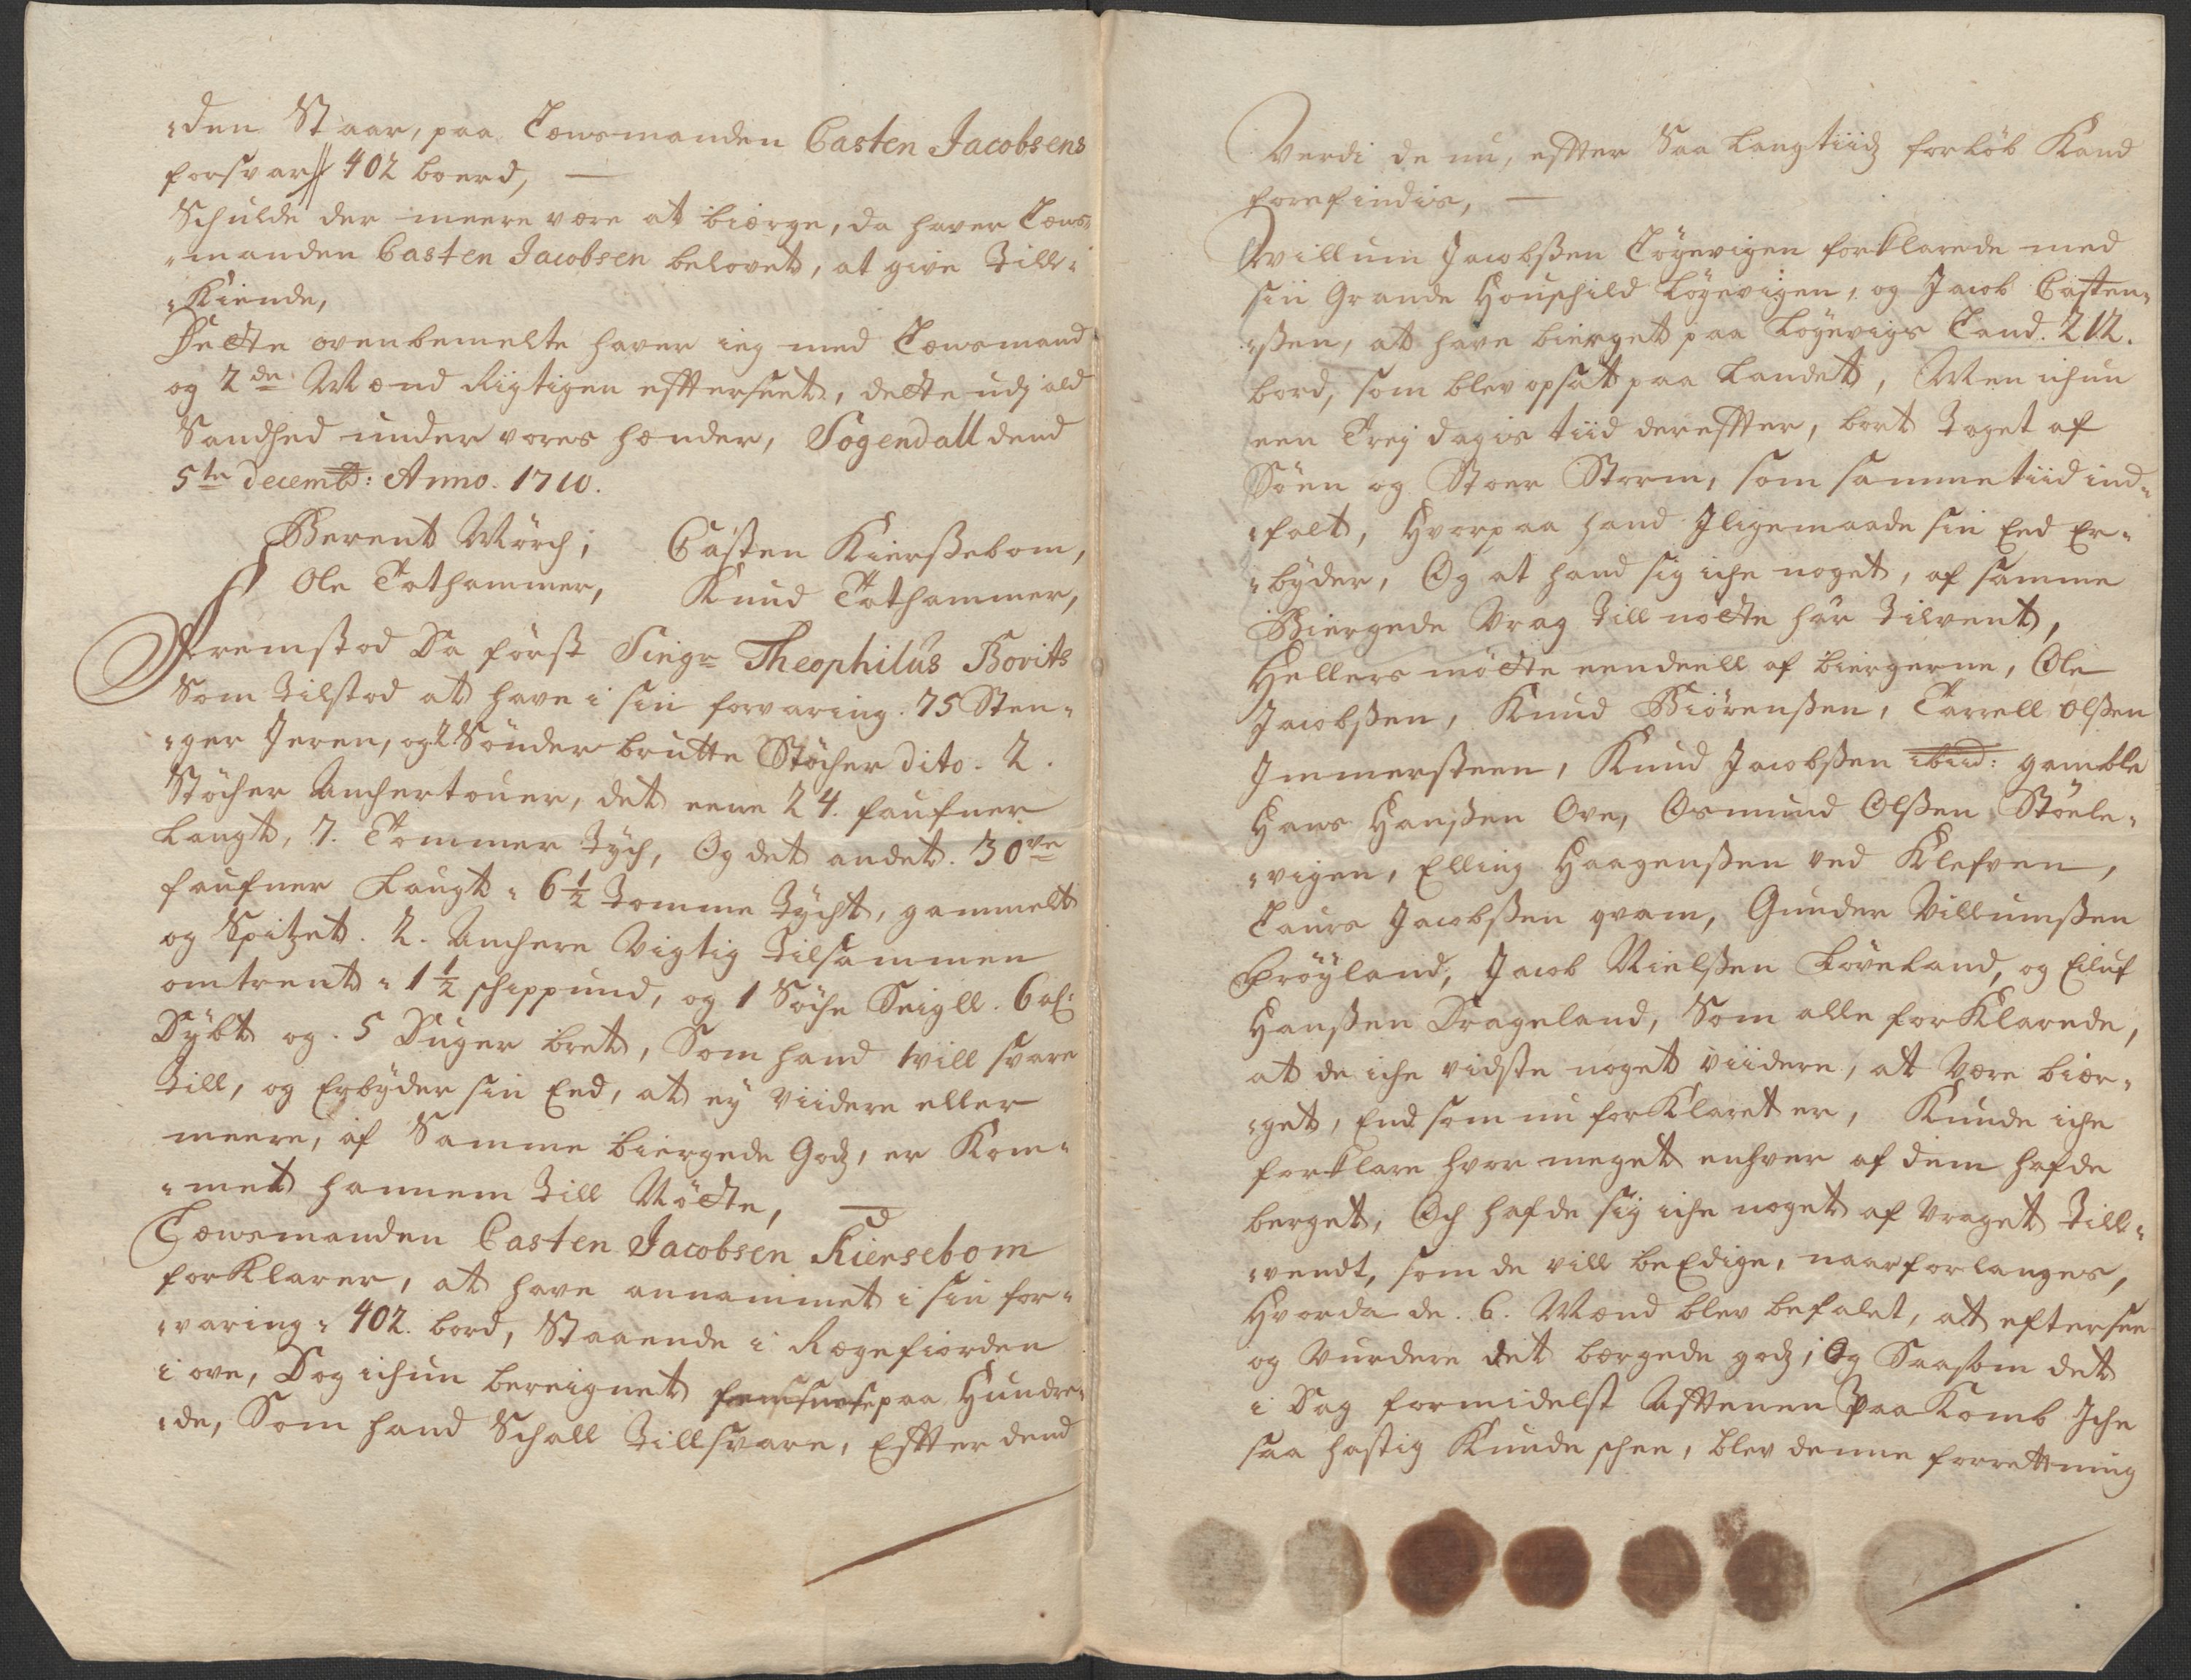 "den Staar, paa Lensmanden Casten Jacobsens
forsvar // 402 boerd, —
Schulde der meere være at biærge, da haver Lens-
"manden Casten Jacobsen belovet, at give till-
"Kiende,
Dette ovenbemelte haver ieg med Lensmand
og 2de Mænd Rigtigen effterseet, dette udj ald
Sandhed under vores hænder, Sogendall dend
5te decemb: Anno. 1710.
Berent Mörch; Casten Kierßebom,
Ole Tothammer, Knud Tothammer,
Fremstod Da först Singr Theophilus Bovits
Som tilstod at have i sin forvaring. 75 Sten-
"ger Jeren, og 2 Sönder brutte Stöcher dito. 2.
Stöcher Anchertouer, det eene 24. faufner
Langt, 7. Tommer Tych, Og det andet. 30ve
faufner Langt " 6 1/2 tomme tycht, gammelt
og Spitzet. 2. Anchere Vigtig tilsammen
omtrent " 1 1/2 schippund, og 1 Söche Seigll. 6 al:
Dybt og. 5 Duger bret, Som hand will svare
till, og Erbyder sin Eed, at ey viidere eller
meere, af Samme biergede Godz, er Kom-
"met hannem till Nötte, —
Lensmanden Casten Jacobsen Kiersebom
forKlarer, at have annammet i sin for-
"varing " 402. bord, Staaende i Rægefiorden
i ove, Dog ichun bereignet paa Hundre-
"de, Som hand Schall tillsvare, Effter dend
Verdi de nu, effter Saa Langtiidz forLöb Kand
forefindis, —
Willum Jacobßen Lögevigen forklarede med
sin Grande Houschild Lögevigen, og Jacob Casten-
"ßen, at have bierget paa Lögevigs Land. 212.
bord, som blev opsat paa Landet, Men ichun
een Trej dagis tiid dereffter, bort taget af
Söen og Stoer Storm, som sammetiid ind-
"falt, Hvorpaa hand Jligemaade sin Eed Er-
"byder, Og at hand sig iche noget, af samme
Biergede Vrag till nötte har tilvent,
Hellers mötte eendeell af biergerne, Ole
Jacobßen, Knud Biörenßen, Tarrell olßen
Immersteen, Knud Jacobßen ibid: gamble
Hans Hanßen Ove, Osmund Olßen Stöele-
"vigen, Elling Haagenßen ved Klefven,
Laurs Jacobßen qvam, Gunder Villumßen
Fröyland, Jacob Nielßen Löveland, og Eiluf
Hanßen Drageland, Som alle forKlarede,
at de iche vidste noget viidere, at være biær-
"get, End som nu forKlaret er, Kunde iche
forklare hvor meget enhver af dem hafde
berget, Och hafde sig iche noget af vraget till-
"vendt, som de vill beEdige, naar forlanges,
Hvorda de. 6. Mænd blev befalet, att eftersee
og Vurdere det bærgede godz, Og Saasom det
i Dag formidelst Afftenen paa Komb Iche
saa hastig Kunde schee, blev denne forrettning